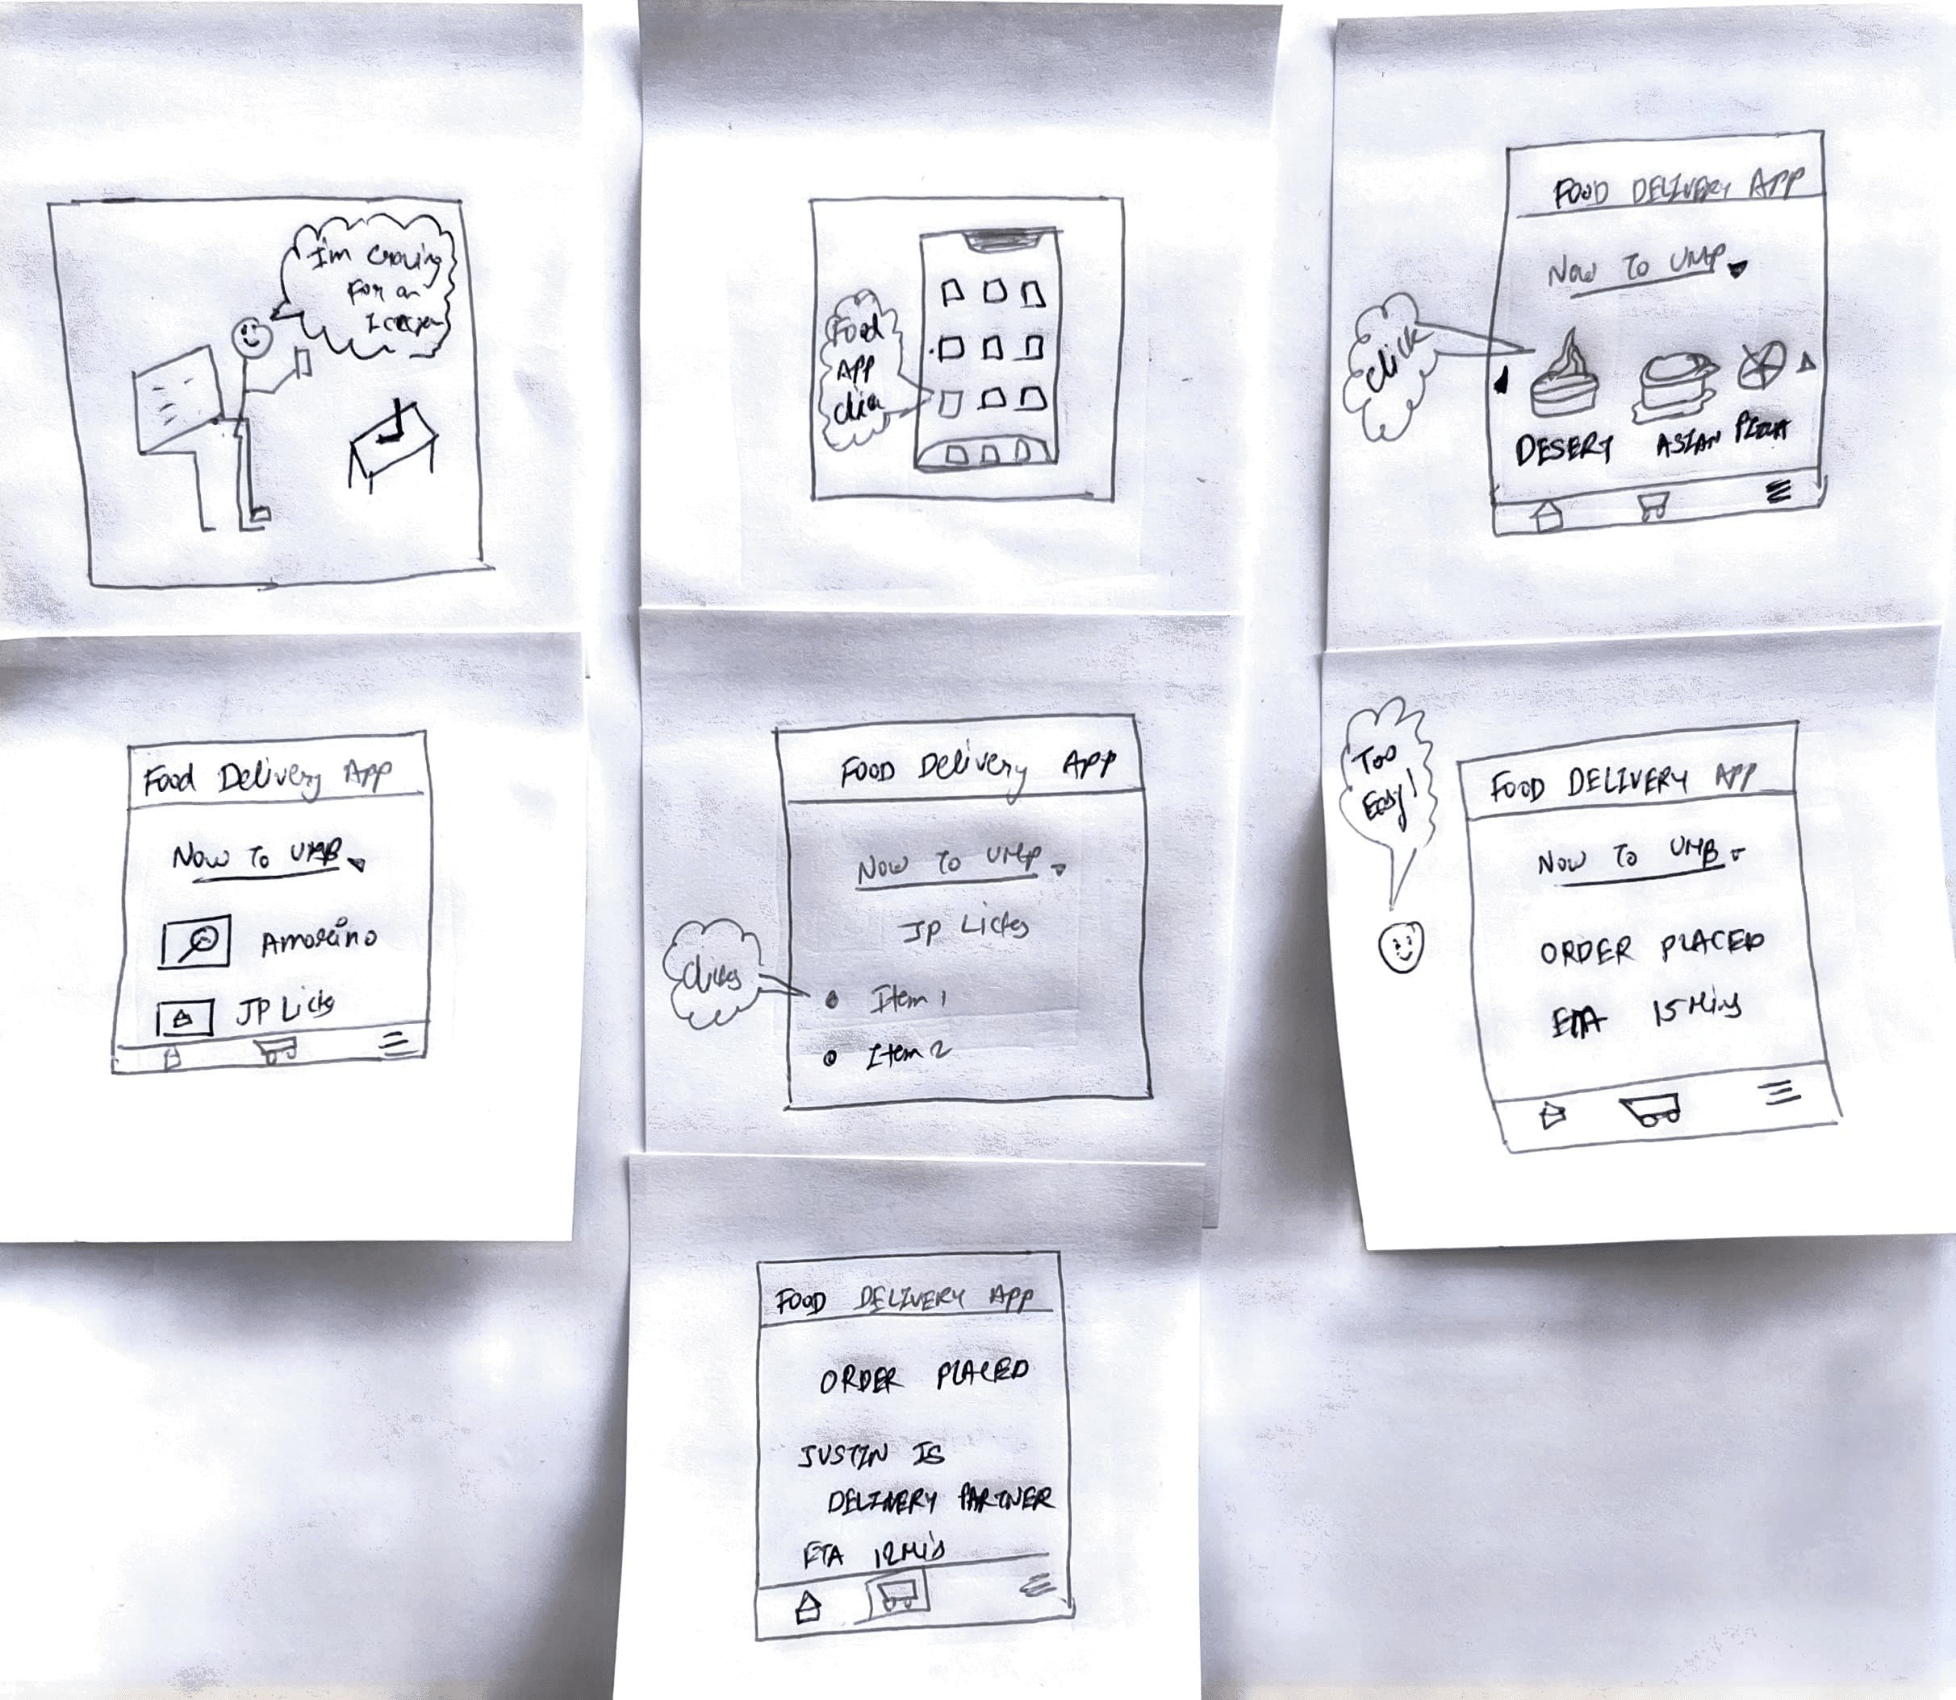 I'm craving
For an
Icecream
Food
APP
click
FOOD DELIVERY APP
Now To UMP
click
DESERT ASIAN PIZZA
Food Delivery App
Now To UMB
Amorino
JP Licks
FOOD Delivery APP
Now To UMP
JP Licks
clicks
Item 1
Item 2
Too
Easy!
FOOD DELIVERY APP
Now To UMB
ORDER PLACED
ETA 15 Mins
FOOD DELIVERY APP
ORDER PLACED
JUSTIN IS
DELIVERY PARTNER
ETA 12